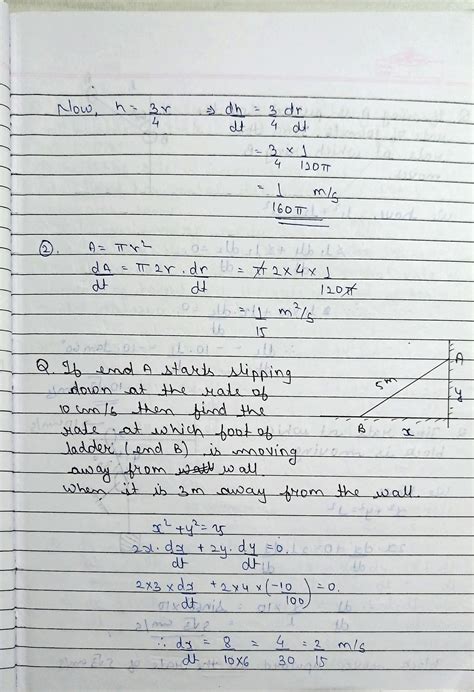 Now, h = 3r/4 ⇒ dh/dt = 3/4 dr/dt
= 3/4 × 1/120π
= 1/160π m/s
②. A = πr²
dA/dt = π2r . dr/dt = π2×4×1/120π
= 1/15 m²/s
Q. If end A starts slipping
down at the rate of
10 cm/s then find the
rate at which foot of
ladder (end B) is moving
away from wall
when it is 3m away from the wall.
A
5m
y
B
x
x² + y² = 25
2x . dx/dt + 2y . dy/dt = 0.
2×3×dx/dt + 2×4×(-10/100) = 0.
∴ dx/dt = 8/10×6 = 4/30 = 2/15 m/s